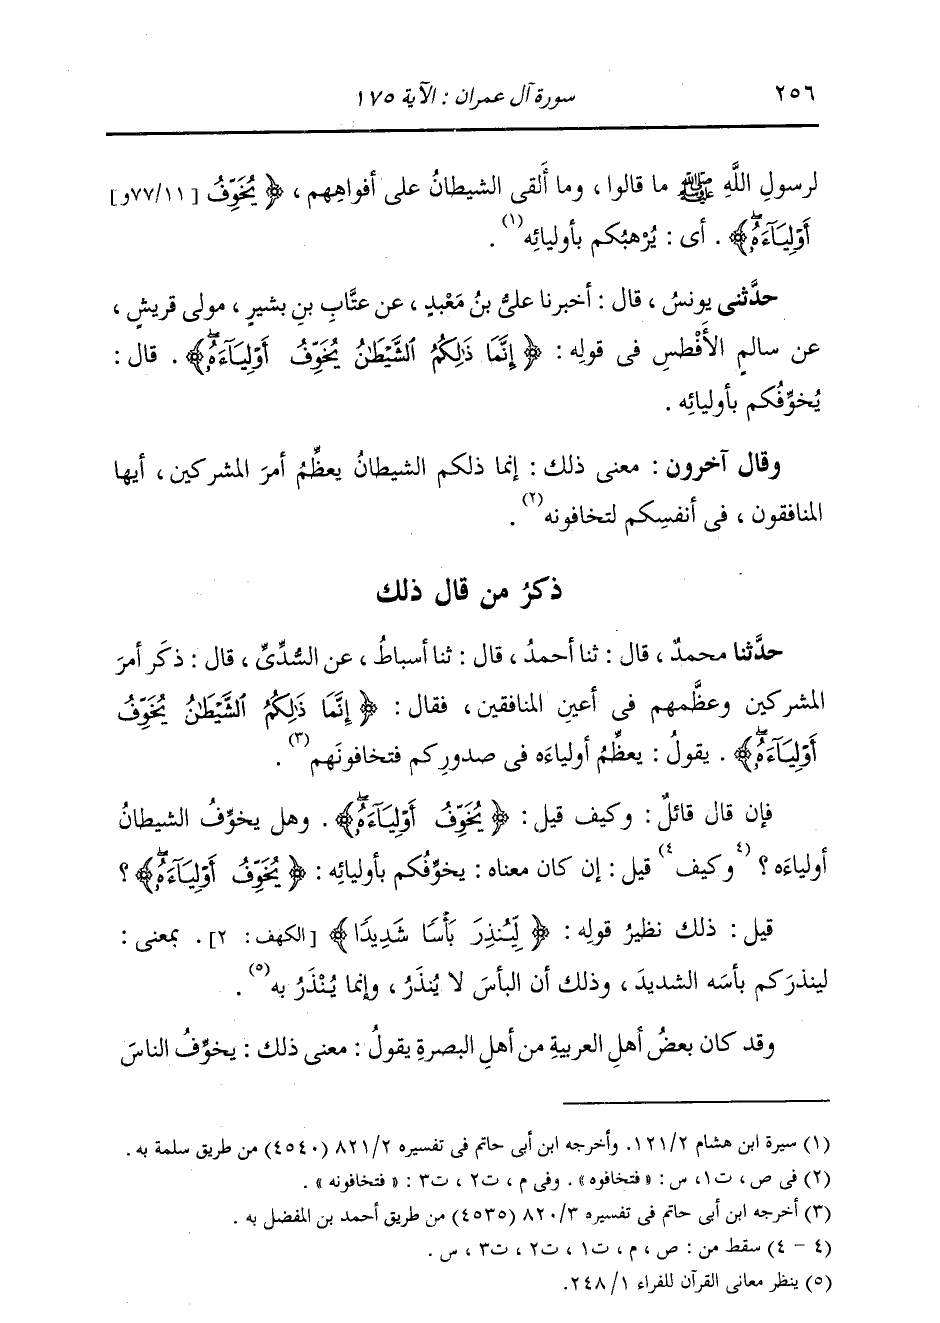 ٢٥٦ سورة آل عمران : الآية ١٧٥
لرسولِ اللَّهِ ﷺ ما قالوا ، وما أَلقى الشيطانُ على أفواهِهم ، ﴿ يُخَوِّفُ [٧٧/١١و]
أَوْلِيَآءَهُۥۖ ﴾ . أى : يُرْهِبُكم بأوليائِه(١) .
حدَّثنى يونسُ ، قال : أخبرنا علىُّ بنُ مَعْبَدٍ ، عن عتَّابِ بنِ بشيرٍ ، مولى قريشٍ ،
عن سالمٍ الأَفْطسِ فى قولِه : ﴿ إِنَّمَا ذَٰلِكُمُ ٱلشَّيْطَٰنُ يُخَوِّفُ أَوْلِيَآءَهُۥۖ ﴾ . قال :
يُخوِّفُكم بأوليائِه .
وقال آخرون : معنى ذلك : إنما ذلكم الشيطانُ يعظِّمُ أمرَ المشركين ، أيها
المنافقون ، فى أنفسِكم لتخافونه(٢) .
ذكرُ من قال ذلك
حدَّثنا محمدٌ ، قال : ثنا أحمدُ ، قال : ثنا أسباطُ ، عن السُّدِّىِّ ، قال : ذكَر أمرَ
المشركين وعظَّمهم فى أعينِ المنافقين ، فقال : ﴿ إِنَّمَا ذَٰلِكُمُ ٱلشَّيْطَٰنُ يُخَوِّفُ
أَوْلِيَآءَهُۥۖ ﴾ . يقولُ : يعظِّمُ أولياءَه فى صدورِكم فتخافونَهم(٣) .
فإن قال قائلٌ : وكيف قيل : ﴿ يُخَوِّفُ أَوْلِيَآءَهُۥۖ ﴾ . وهل يخوِّفُ الشيطانُ
أولياءَه ؟ (٤)وكيف(٤) قيل : إن كان معناه : يخوِّفُكم بأوليائِه : ﴿ يُخَوِّفُ أَوْلِيَآءَهُۥۖ ﴾ ؟
قيل : ذلك نظيرُ قولِه : ﴿ لِّيُنذِرَ بَأْسًا شَدِيدًا ﴾ [الكهف : ٢] . بمعنى :
لينذرَكم بأسَه الشديدَ ، وذلك أن البأسَ لا يُنذَرُ ، وإنما يُنْذَرُ به(٥) .
وقد كان بعضُ أهلِ العربيةِ من أهلِ البصرةِ يقولُ : معنى ذلك : يخوِّفُ الناسَ
(١) سيرة ابن هشام ١٢١/٢. وأخرجه ابن أبى حاتم فى تفسيره ٨٢١/٢ (٤٥٤٠) من طريق سلمة به .
(٢) فى ص ، ت١، س : « فتخافوه » . وفى م ، ت٢ ، ت٣ : « فتخافونه » .
(٣) أخرجه ابن أبى حاتم فى تفسيره ٨٢٠/٣ (٤٥٣٥) من طريق أحمد بن المفضل به .
(٤ - ٤) سقط من : ص ، م ، ت١ ، ت٢ ، ت٣ ، س .
(٥) ينظر معانى القرآن للفراء ٢٤٨/١.